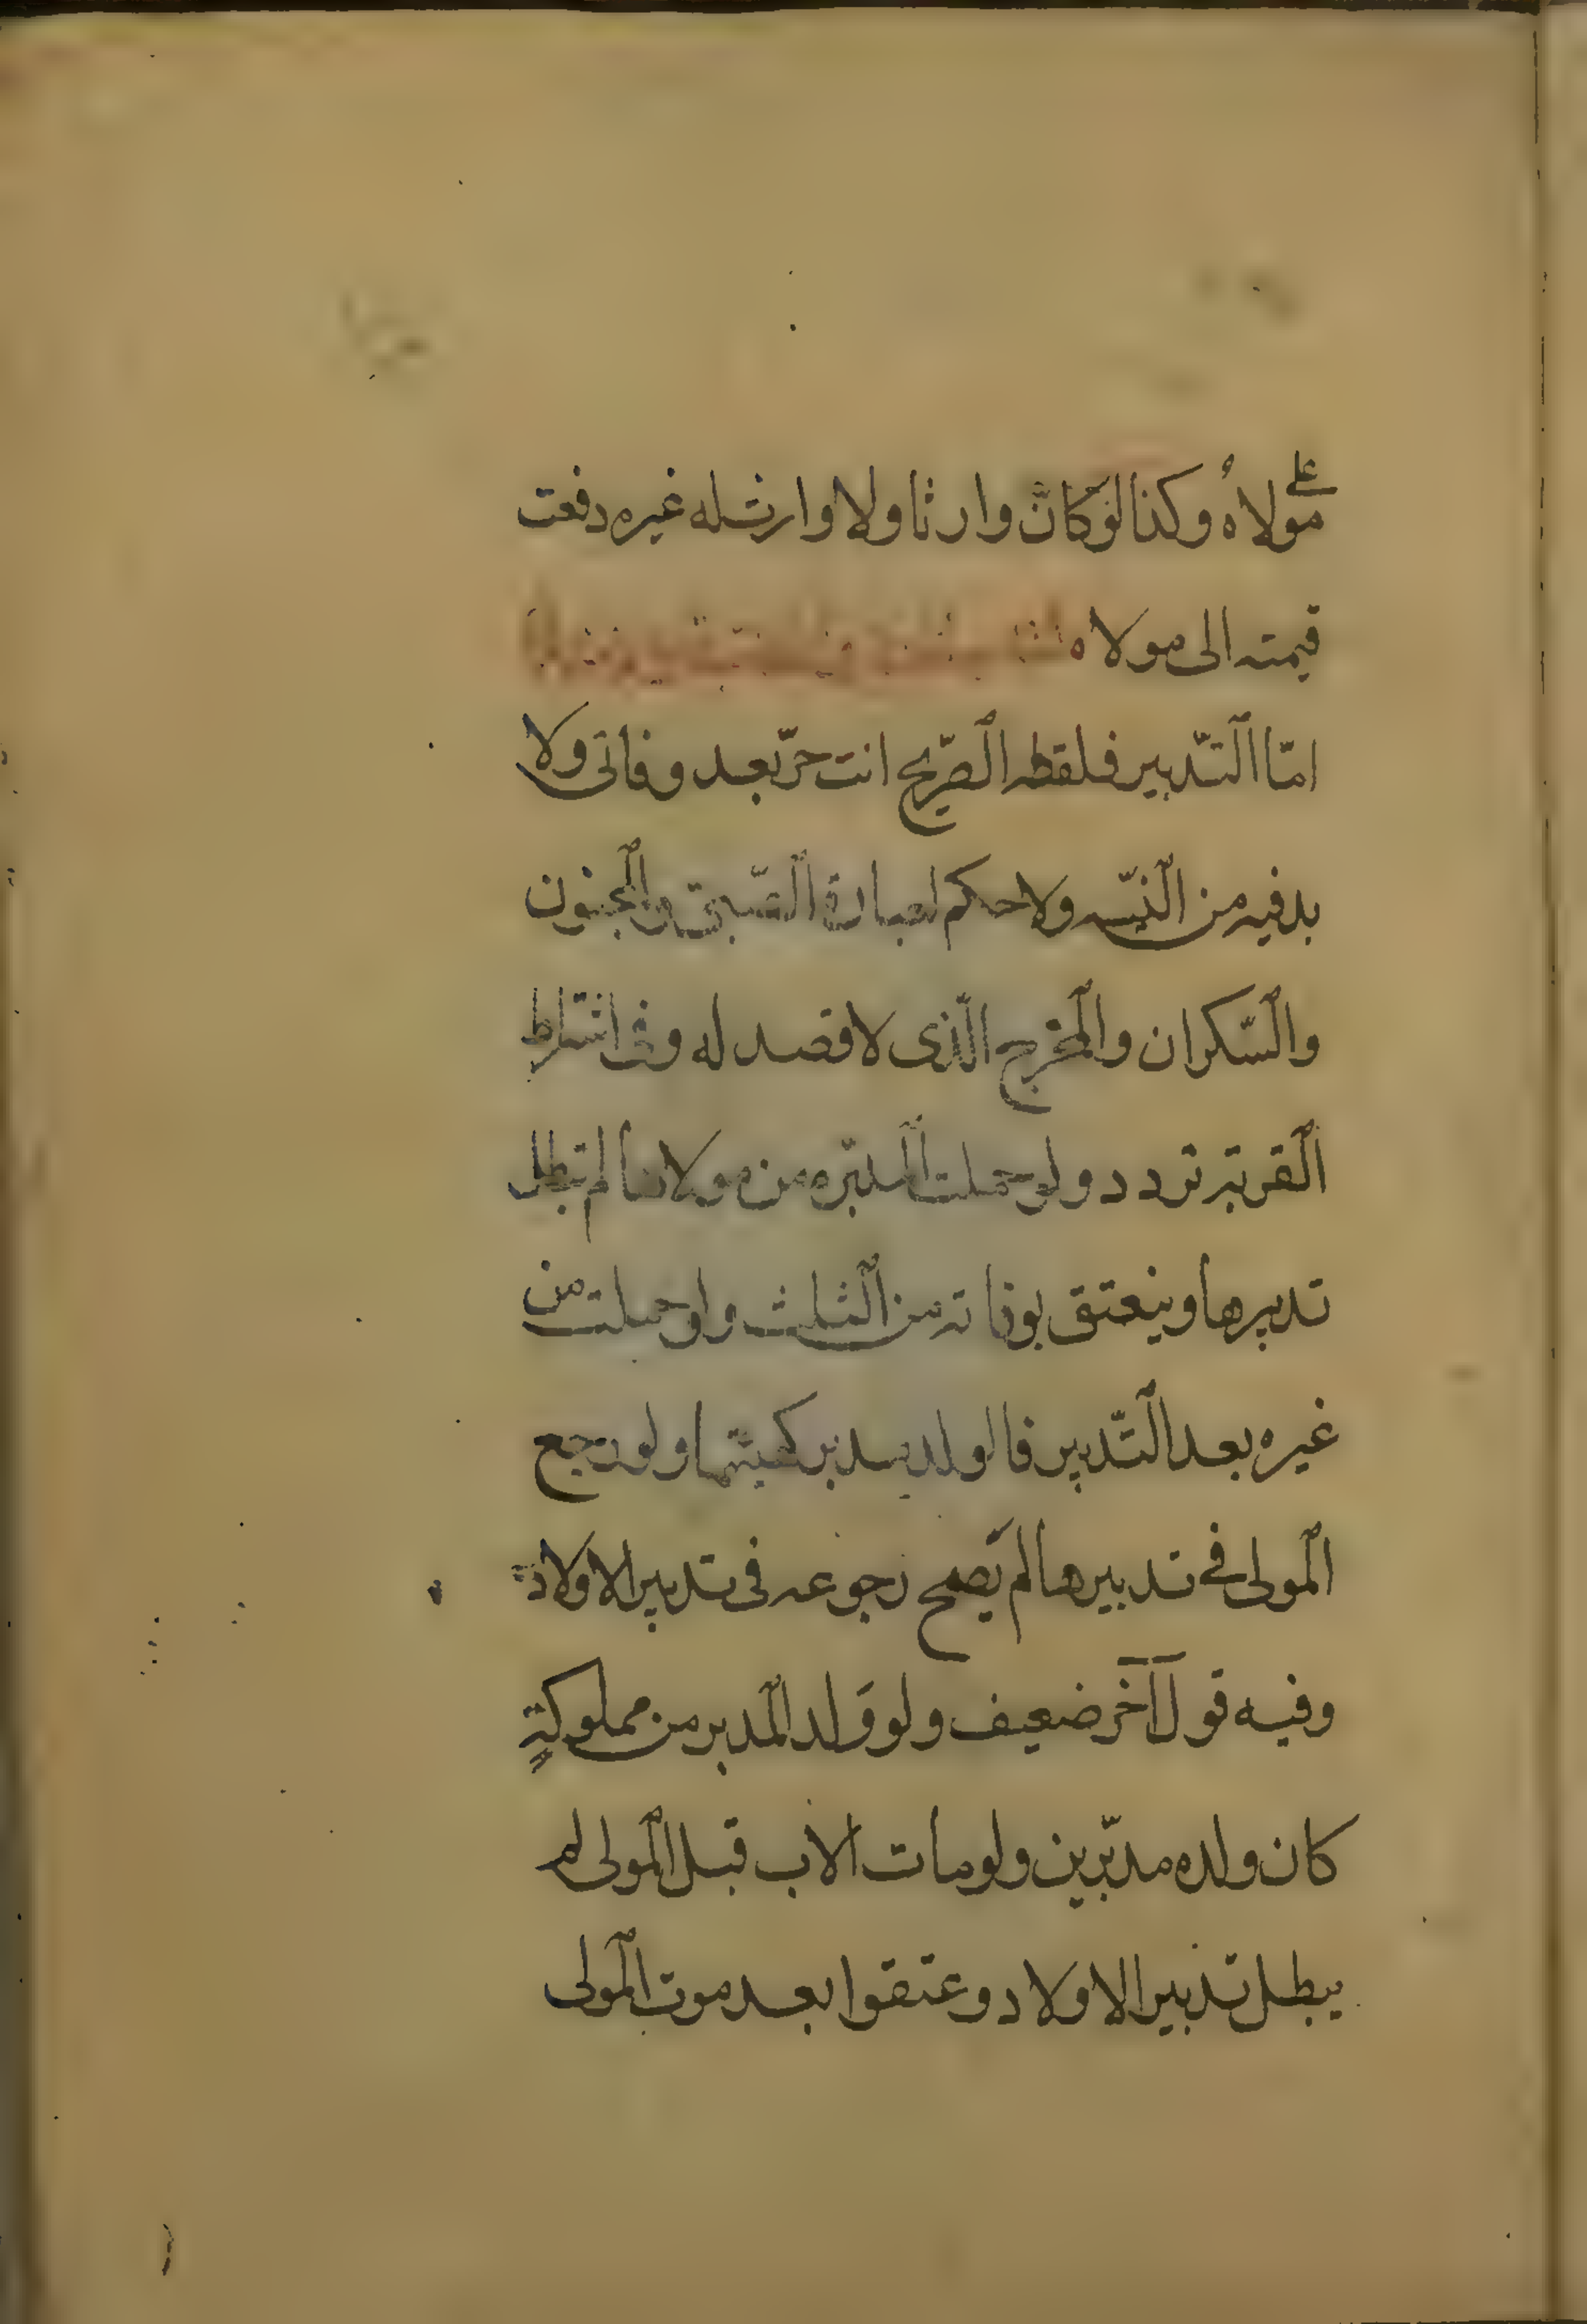 على
مولاهُ وكذا لوكانَ وارثا ولا وارث له غيره دفعت
قيمته الى مولاه
امّا التّدبير فلفظه الصّريح انت حرّ بعد وفاتى ولا
بد فيه من النّيّه ولا حكم لعبارة الصّبىّ والمجنون
والسّكران والمحرج الّذى لا قصد له وفى اشتراط
القربة تردد ولو حملت المدبّره من مولاها لم تبطل
تدبيرها وينعتق بوفاته من الثلث ولو حملت من
غيره بعد التّدبير فالولد مدبر كهيئتها ولو رجع
المولى فى تدبيرها لم يَصح رجوعه فى تدبير الاولاد
وفيه قول آخر ضعيف ولو وَلد المدبر من مملوكةٍ
كان ولده مدبّرين ولو مات الاب قبل المولى لم
يبطل تدبير الاولاد وعتقوا بعد موت المولى